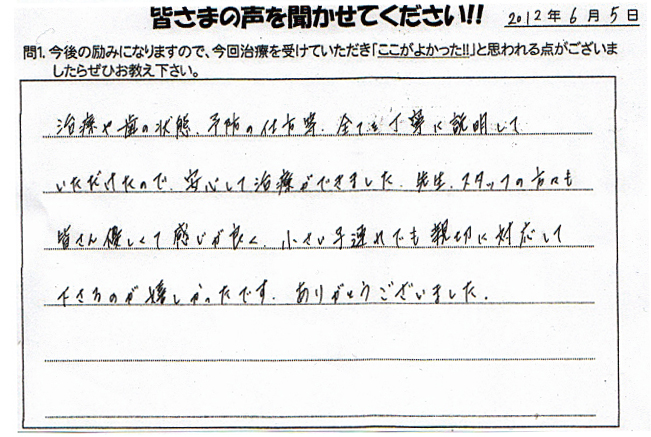 皆さまの声を聞かせてください!! 2012年6月5日
問1. 今後の励みになりますので、今回治療を受けていただき「ここがよかった!!」と思われる点がございま
したらぜひお教え下さい。
治療や歯の状態、予防の仕方等、全てを丁寧に説明して
いただけたので、安心して治療ができました。先生、スタッフの方々も
皆さん優しくて感じが良く、小さい子連れでも親切に対応して
下さるのが嬉しかったです。ありがとうございました。